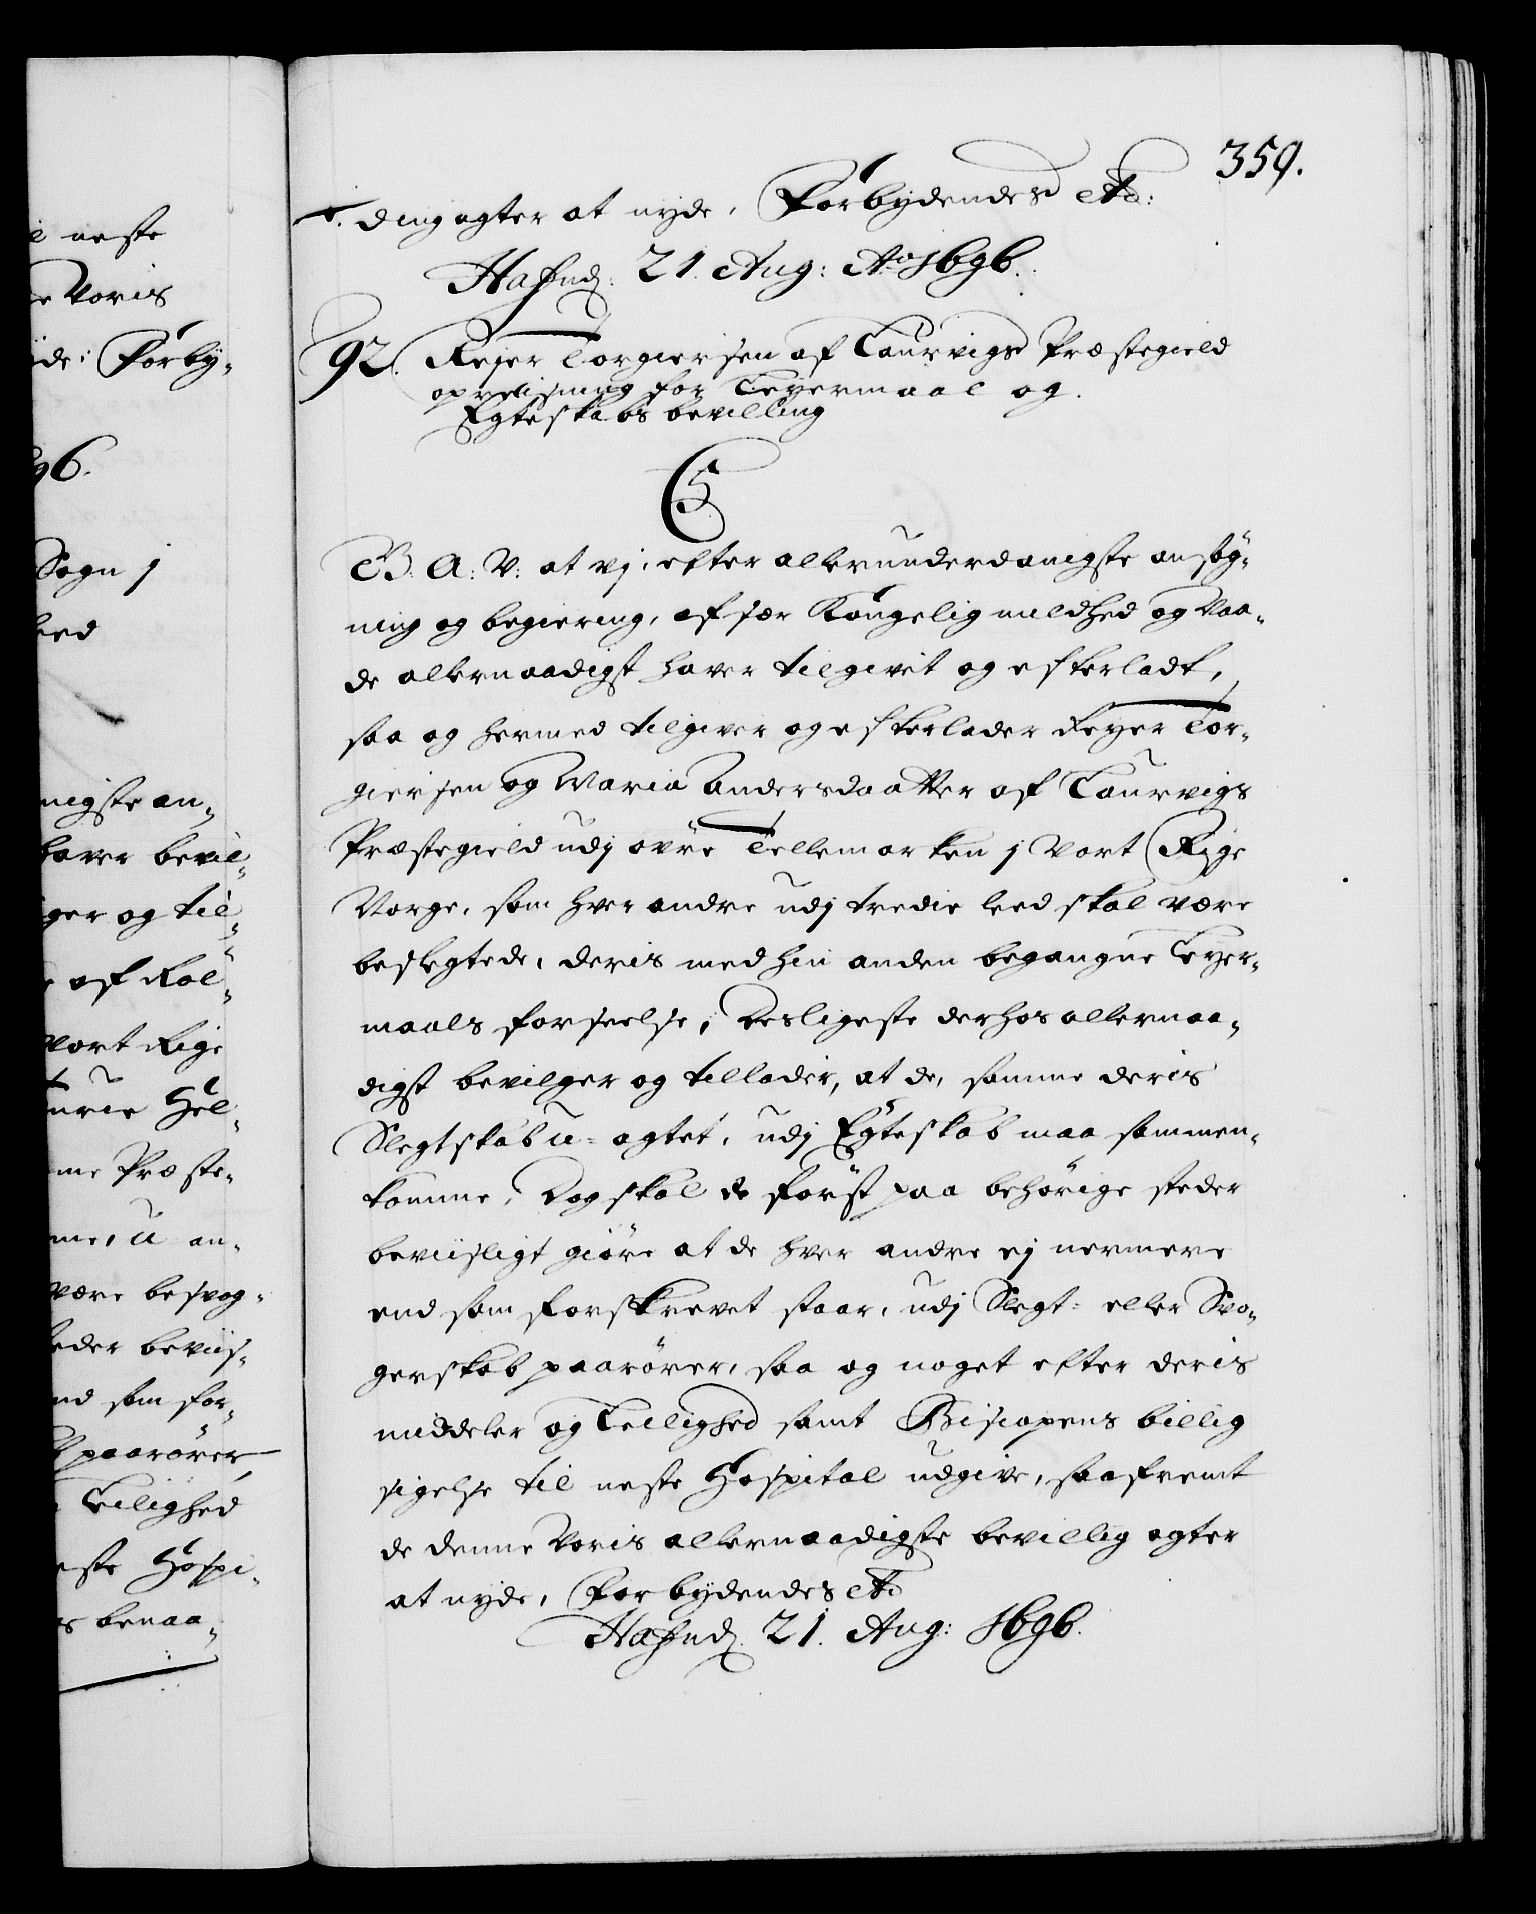 359.
ding agter at nyde, Forbydendes etc:
Hafnd: 21. Aug: Ao 1696.
92. Rejer Torgiersen af Laurvigs Præstegield
opreisning for Leyermaal og
Egteskabs bevilling
C5
B: A: V: at vj, efter allerunderdanigste ansøg-
ning og begiering, af sær Kongelig mildhed og Naa-
de allernaadigst haver tilgivet og efterladt,
saa og hermed tilgiver og efterlader Reyer Tor-
giersen og Maria Andersdaatter af Laurvigs
Præstegield udj øvre Tellemarken j Vort Rige
Norge, som hver andre udj tredie leed skal være
beslegtede, deris med hin anden begangne Leyer-
maals forseelse, Desligeste derhos allernaa-
digst bevilger og tillader, at de, samme deris
Slegtskab u-agtet, udj Egteskab maa sammen-
komme, Dog skal de først paa behørige steder
beviisligt giøre at de hver andre ej nermere
end som forskrevet staar, udj Slegt- eller Svo-
gerskab paarører, saa og noget efter deris
middeler og Leilighed samt Biscopens billig
sigelse til neste Hospital udgive, saafremt
de denne Voris allernaadigste bevillig agter
at nyde, Forbydendes etc
Hafnd: 21. Aug: 1696.
neste
Voris
Forby-
96.
Sogn j
leed
nigste an-
haver bevil-
ger og til-
af Røl-
Vort Rige
Hel-
me Præste-
me, u an-
være besvog-
steder beviis-
end som for-
paarører
Leilighed
neste Hospi-
benaa-